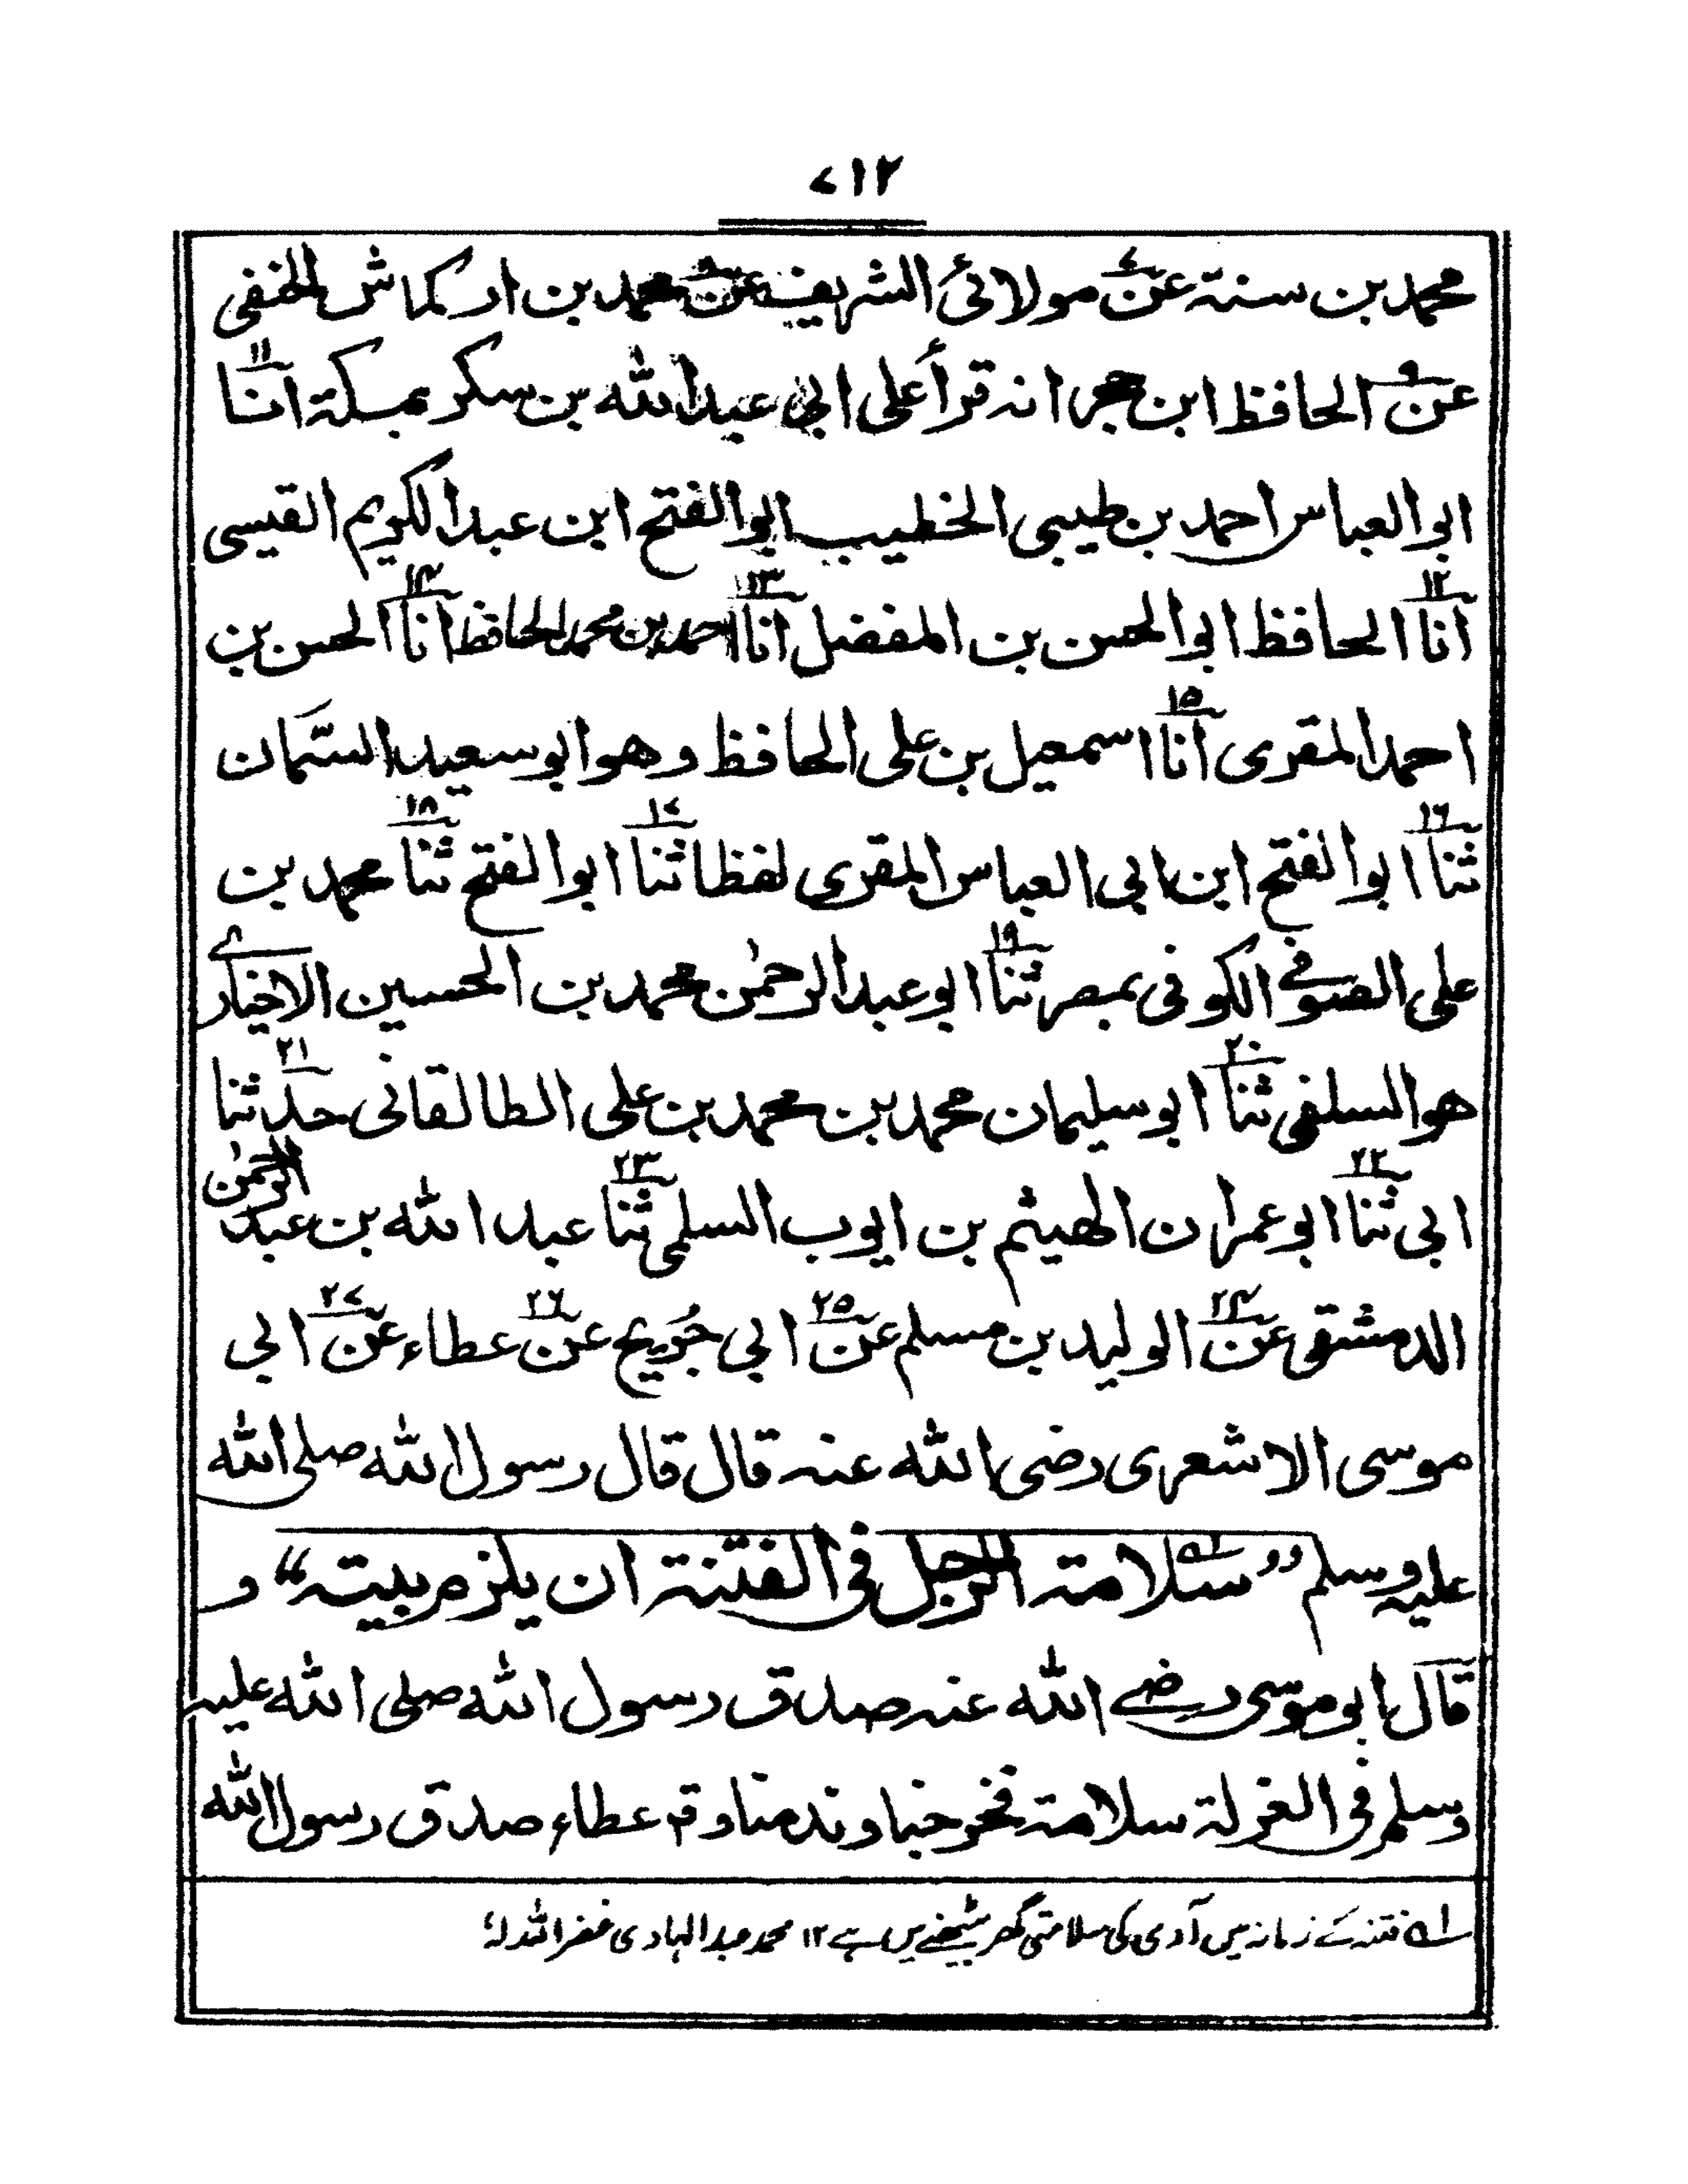 ۷۱۲
محمد بن سنة عن۷ مولائی الشریف عن۸ محمد بن ارکماش الحنفی
عن۹ الحافظ ابن حجر انه قرأ علی ابی عبد الله بن سکر بمکة انا۱۱
ابو العباس احمد بن طیبی الخطیب ابو الفتح ابن عبد الکریم القیسی
انا۱۲ الحافظ ابو الحسن بن المفضل انا۱۳ احمد بن محمد الحافظ انا۱۴ الحسن بن
احمد المقری انا۱۵ اسمعیل بن علی الحافظ وهو ابو سعید السّمان
ثنا۱۶ ابو الفتح ابن ابی العباس المقری لفظا ثنا۱۷ ابو الفتح ثنا۱۸ محمد بن
علی الصوفی الکوفی بمصر ثنا۱۹ ابو عبد الرحمٰن محمد بن الحسین الاخیاری
هو السلفی ثنا۲۰ ابو سلیمان محمد بن محمد بن علی الطالقانی حدثنا۲۱
ابی ثنا۲۲ ابو عمران الهیثم بن ایوب السلمی ثنا۲۳ عبد الله بن عبد الرحمٰن
الدمشقی عن۲۴ الولید بن مسلم عن۲۵ ابی جُریج عن۲۶ عطاء عن۲۷ ابی
موسی الاشعری رضی الله عنه قال قال رسول الله صلی الله
علیه وسلم “سلامة۱ الرجل فی الفتنة ان یلزم بیته” و
قال ابو موسی رضی الله عنه صدق رسول الله صلی الله علیه
وسلم فی العزلة سلامة فخرجنا وندمنا وقم عطاء صدق رسول الله
۱؎ فتنہ کے زمانہ میں آدمی کی سلامتی گھر بیٹھنے میں ہے ۱۲ محمد عبد الہادی غفر اللہ لہٗ